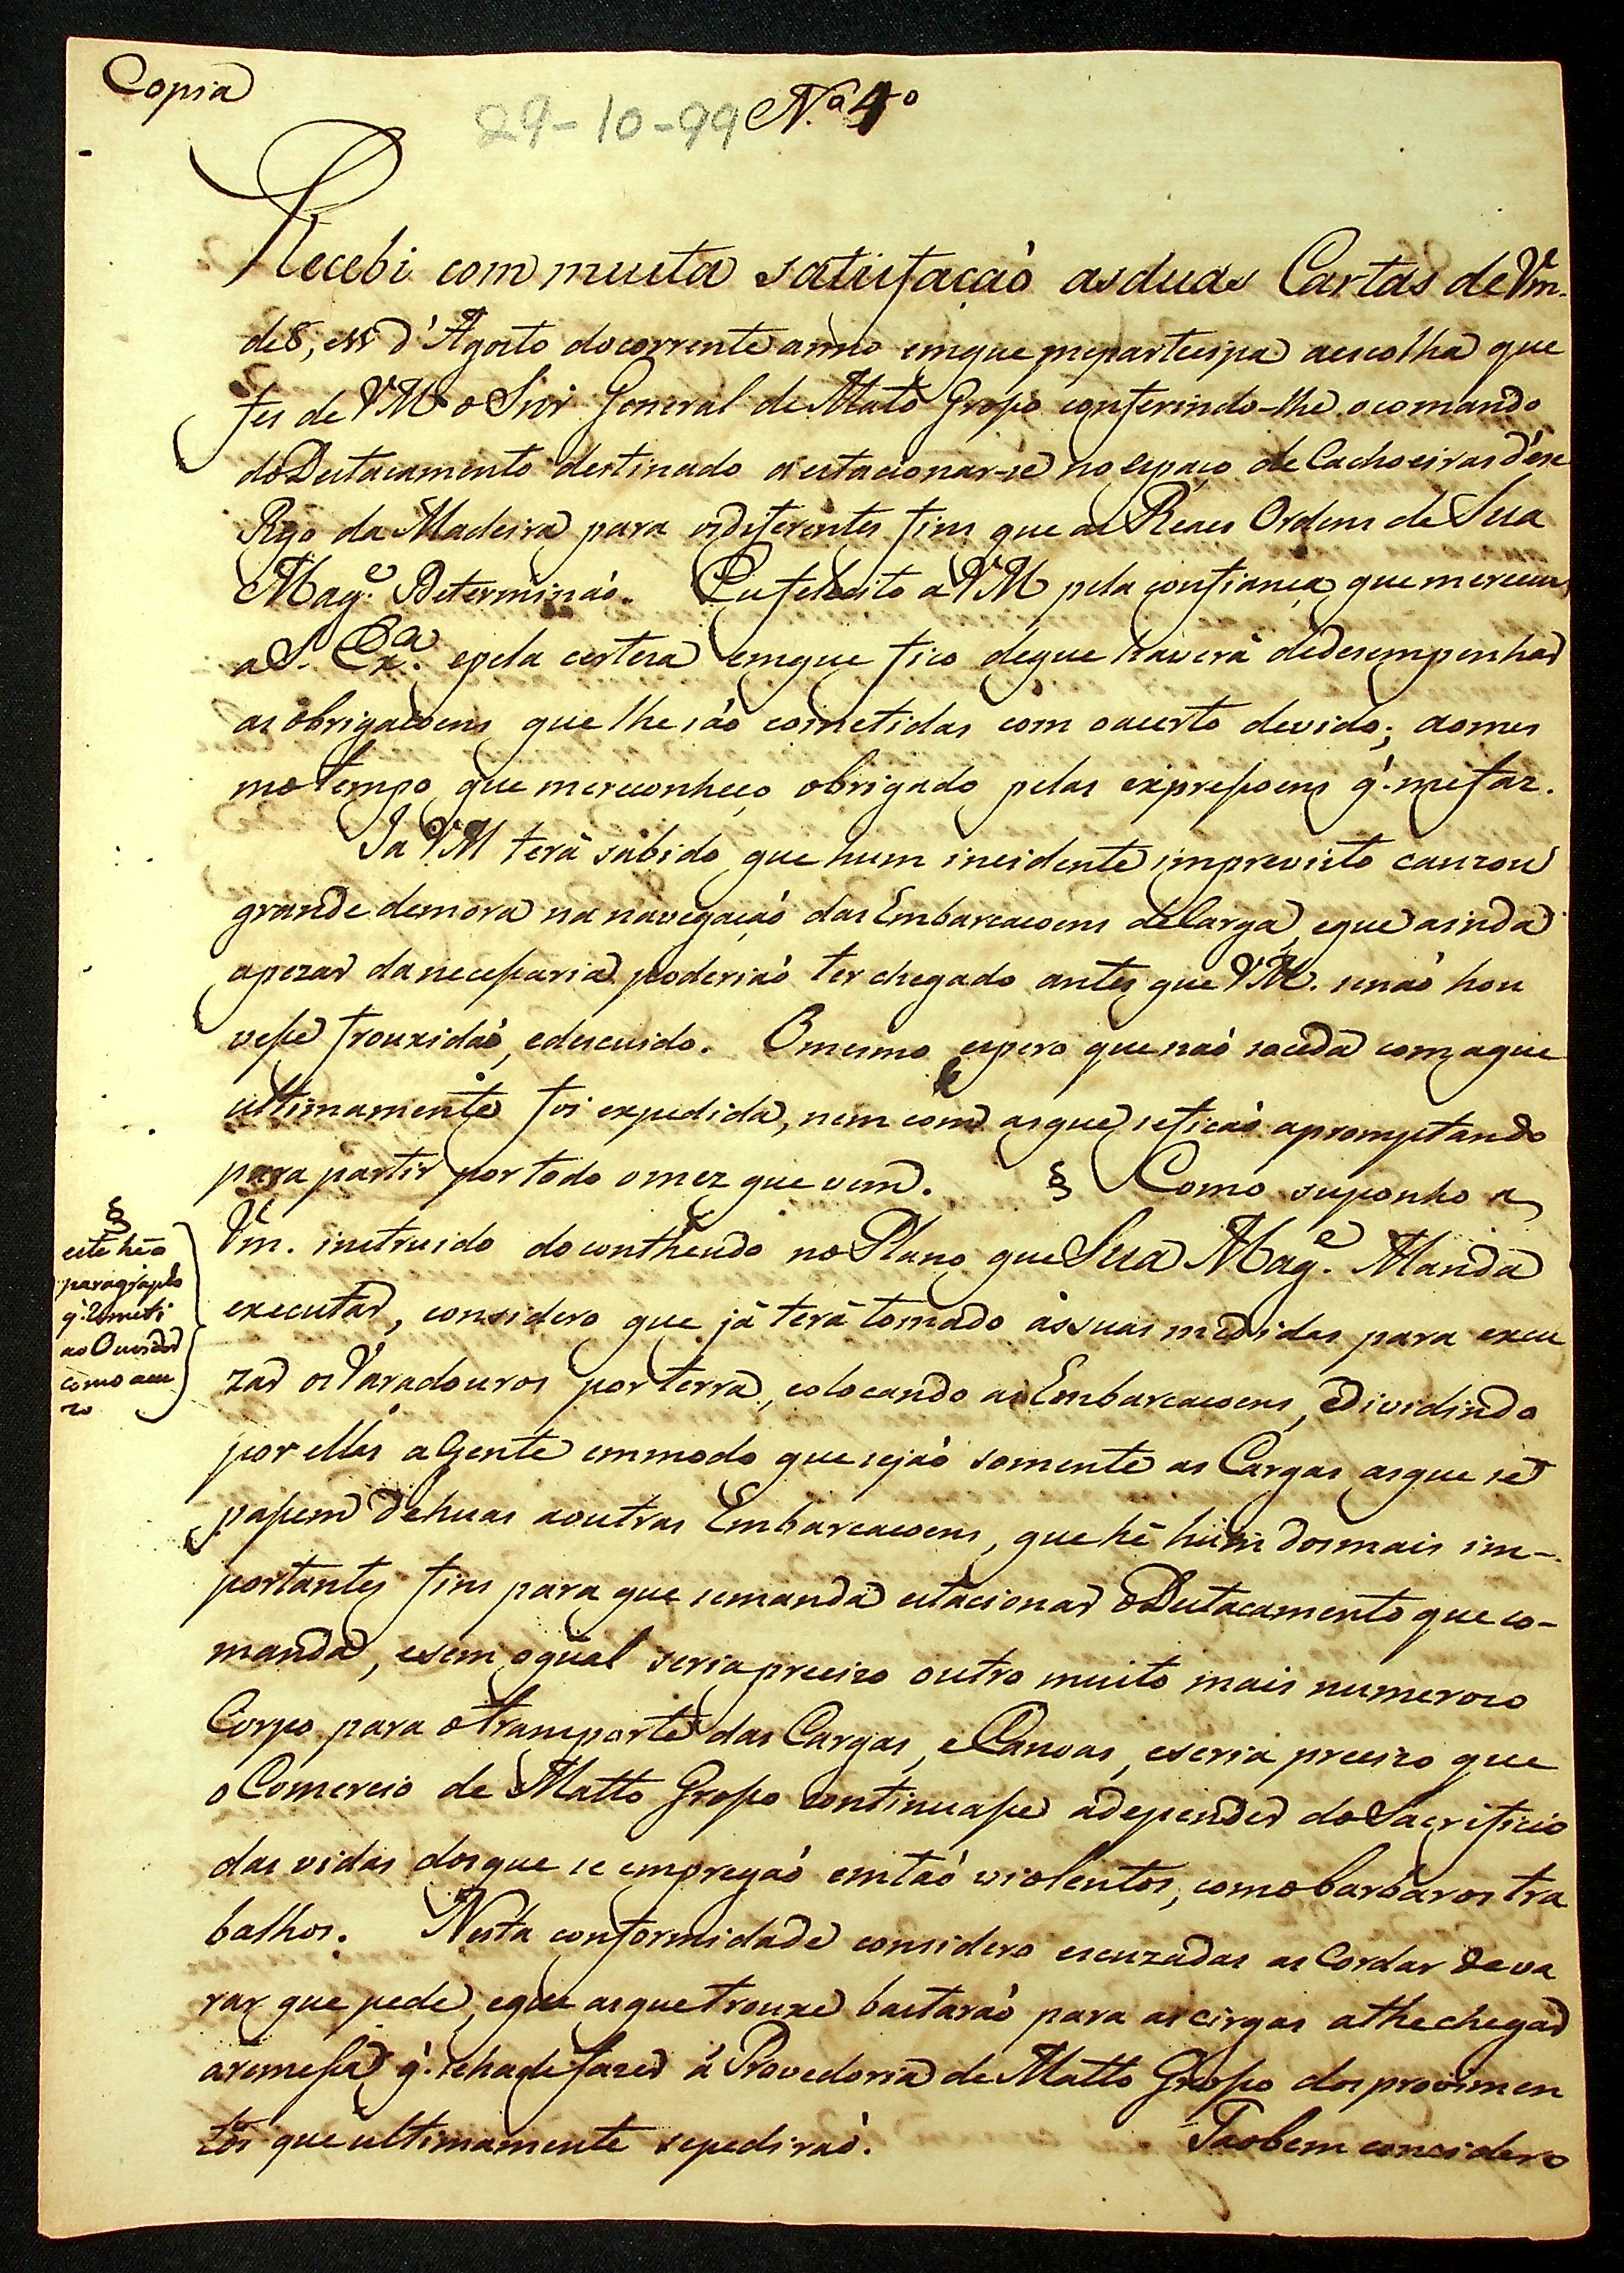 Copia
29-10-99 N.º 4º
Recebi com muita satisfaçaò as duas Cartas de Vm.
de 8, e 11 d'Agosto do corrente anno em que me partecipa a escolha que
fes de VM.ce o Snr. General de Mato Grosso conferindo-lhe o comando
do Destacamento destinado a estacionar-se no espaço de Cachoeiras d'ésse
Ryo da Madeira para os diferentes fins que as Reaes Ordens de Sua
Mag.e Determináo. Eu felecito a VM pela confiança que mereceu
a S. Ex.a e pela certesa em que fico de que haverá de desempenhar
as obrigaçoens que lhe são cometidas com o acerto devido; ao mes
mo tempo que me reconheço obrigado pelas expressoens q. me faz.
Ja VM terá sabido que hum incidente imprevisto cauzou
grande demora na navegaçaó das Embarcaçoens de Carga, e que ainda
apezar da necessaria poderiaó ter chegado antes que VM. se naó hou
vesse frouxidaó, e descuido. O mesmo espero que naó soceda com a que
ultimamente foi expedida, nem com as que se ficaó apromptando
para partir por todo o mez que vem. § Como suponho a
Vm. instruido do contheudo no Plano que Sua Mag.e Manda
executar, considero que já terá tomado as suas medidas para escu
zar os Varadouros por terra, colocando as Embarcaçoens, e dividindo
por ellas a Gente em modo que sejaó somente as Cargas as que se
passem de huas a outras Embarcaçoens, que hé hum dos mais im-
portantes fins para que se manda estacionar o Destacamento que co-
manda, e sem o qual seria precizo outro muito mais numerozo
Corpo para o transporte das Cargas, e Canoas, e seria precizo que
o Comercio de Matto Grosso continuasse a depender do Sacrificio
das vidas dos que se empregaó em taó violentos, como barbaros tra
balhos. Nesta conformidade considero escuzadas as Cordas de va
rar que pede, e que as que trouxe bastaráó para as cirgas athe chegar
a remessa q. se ha de fazer á Provedoria de Matto Grosso dos provimen
tos que ultimamente se pediraó. Taobem considero
§
este hé o
paragrapho
q. Remeti
ao Ouvidor
como acu
zo